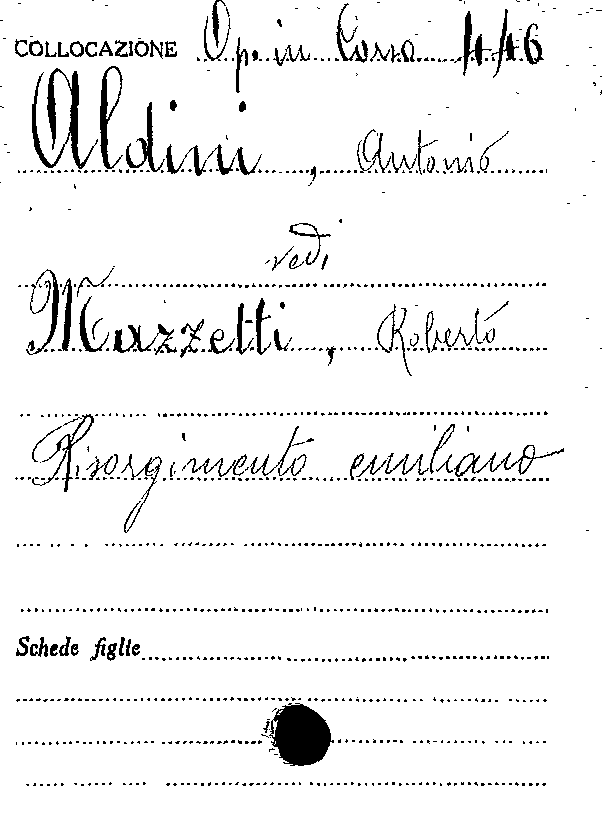 COLLOCAZIONE Op. in Corso 4/46
Aldini, Antonio
vedi
Mazzetti, Roberto
Risorgimento emiliano
Schede figlie